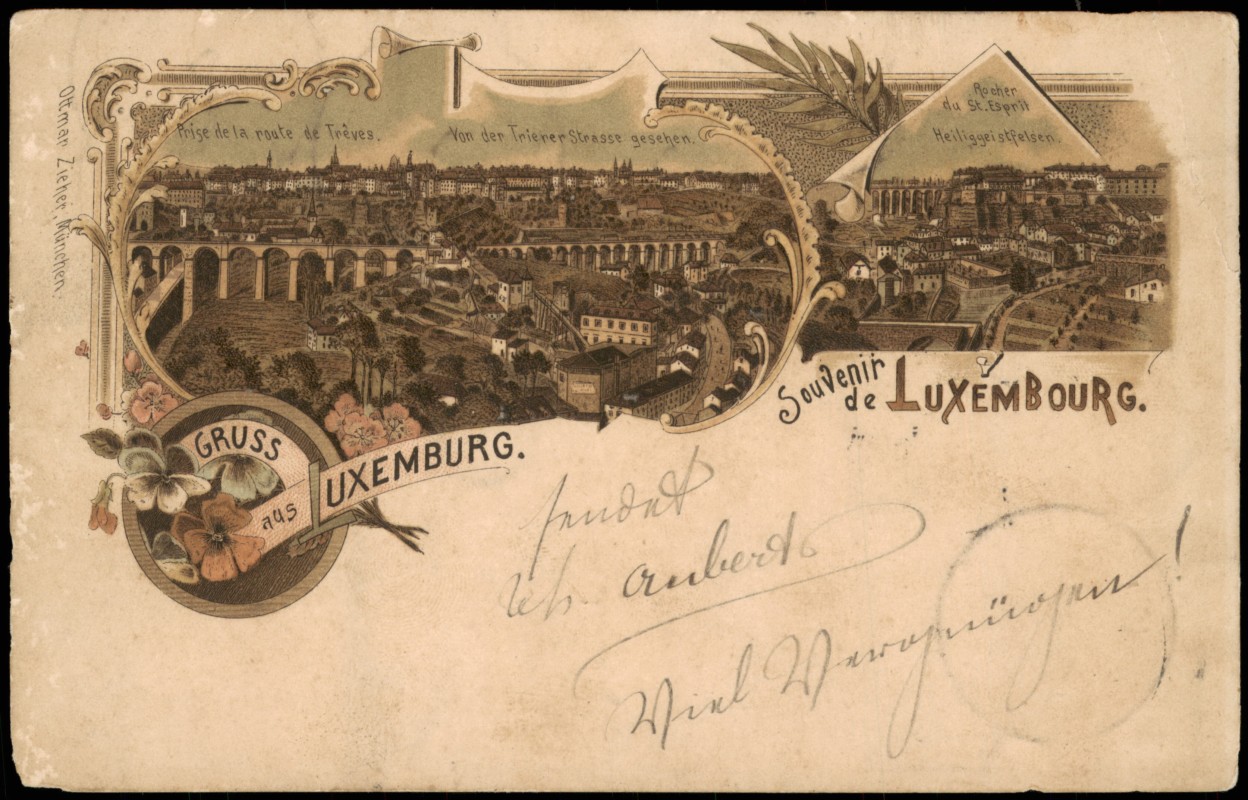 Ottmar Zieher, München.
Prise de la route de Trêves.
Von der Trierer Strasse gesehen.
Rocher
du St. Esprit
Heiliggeistfelsen.
Souvenir
de LUXEMBOURG.
GRUSS
aus LUXEMBURG.
sendet
aubert
Viel Vergnügen!